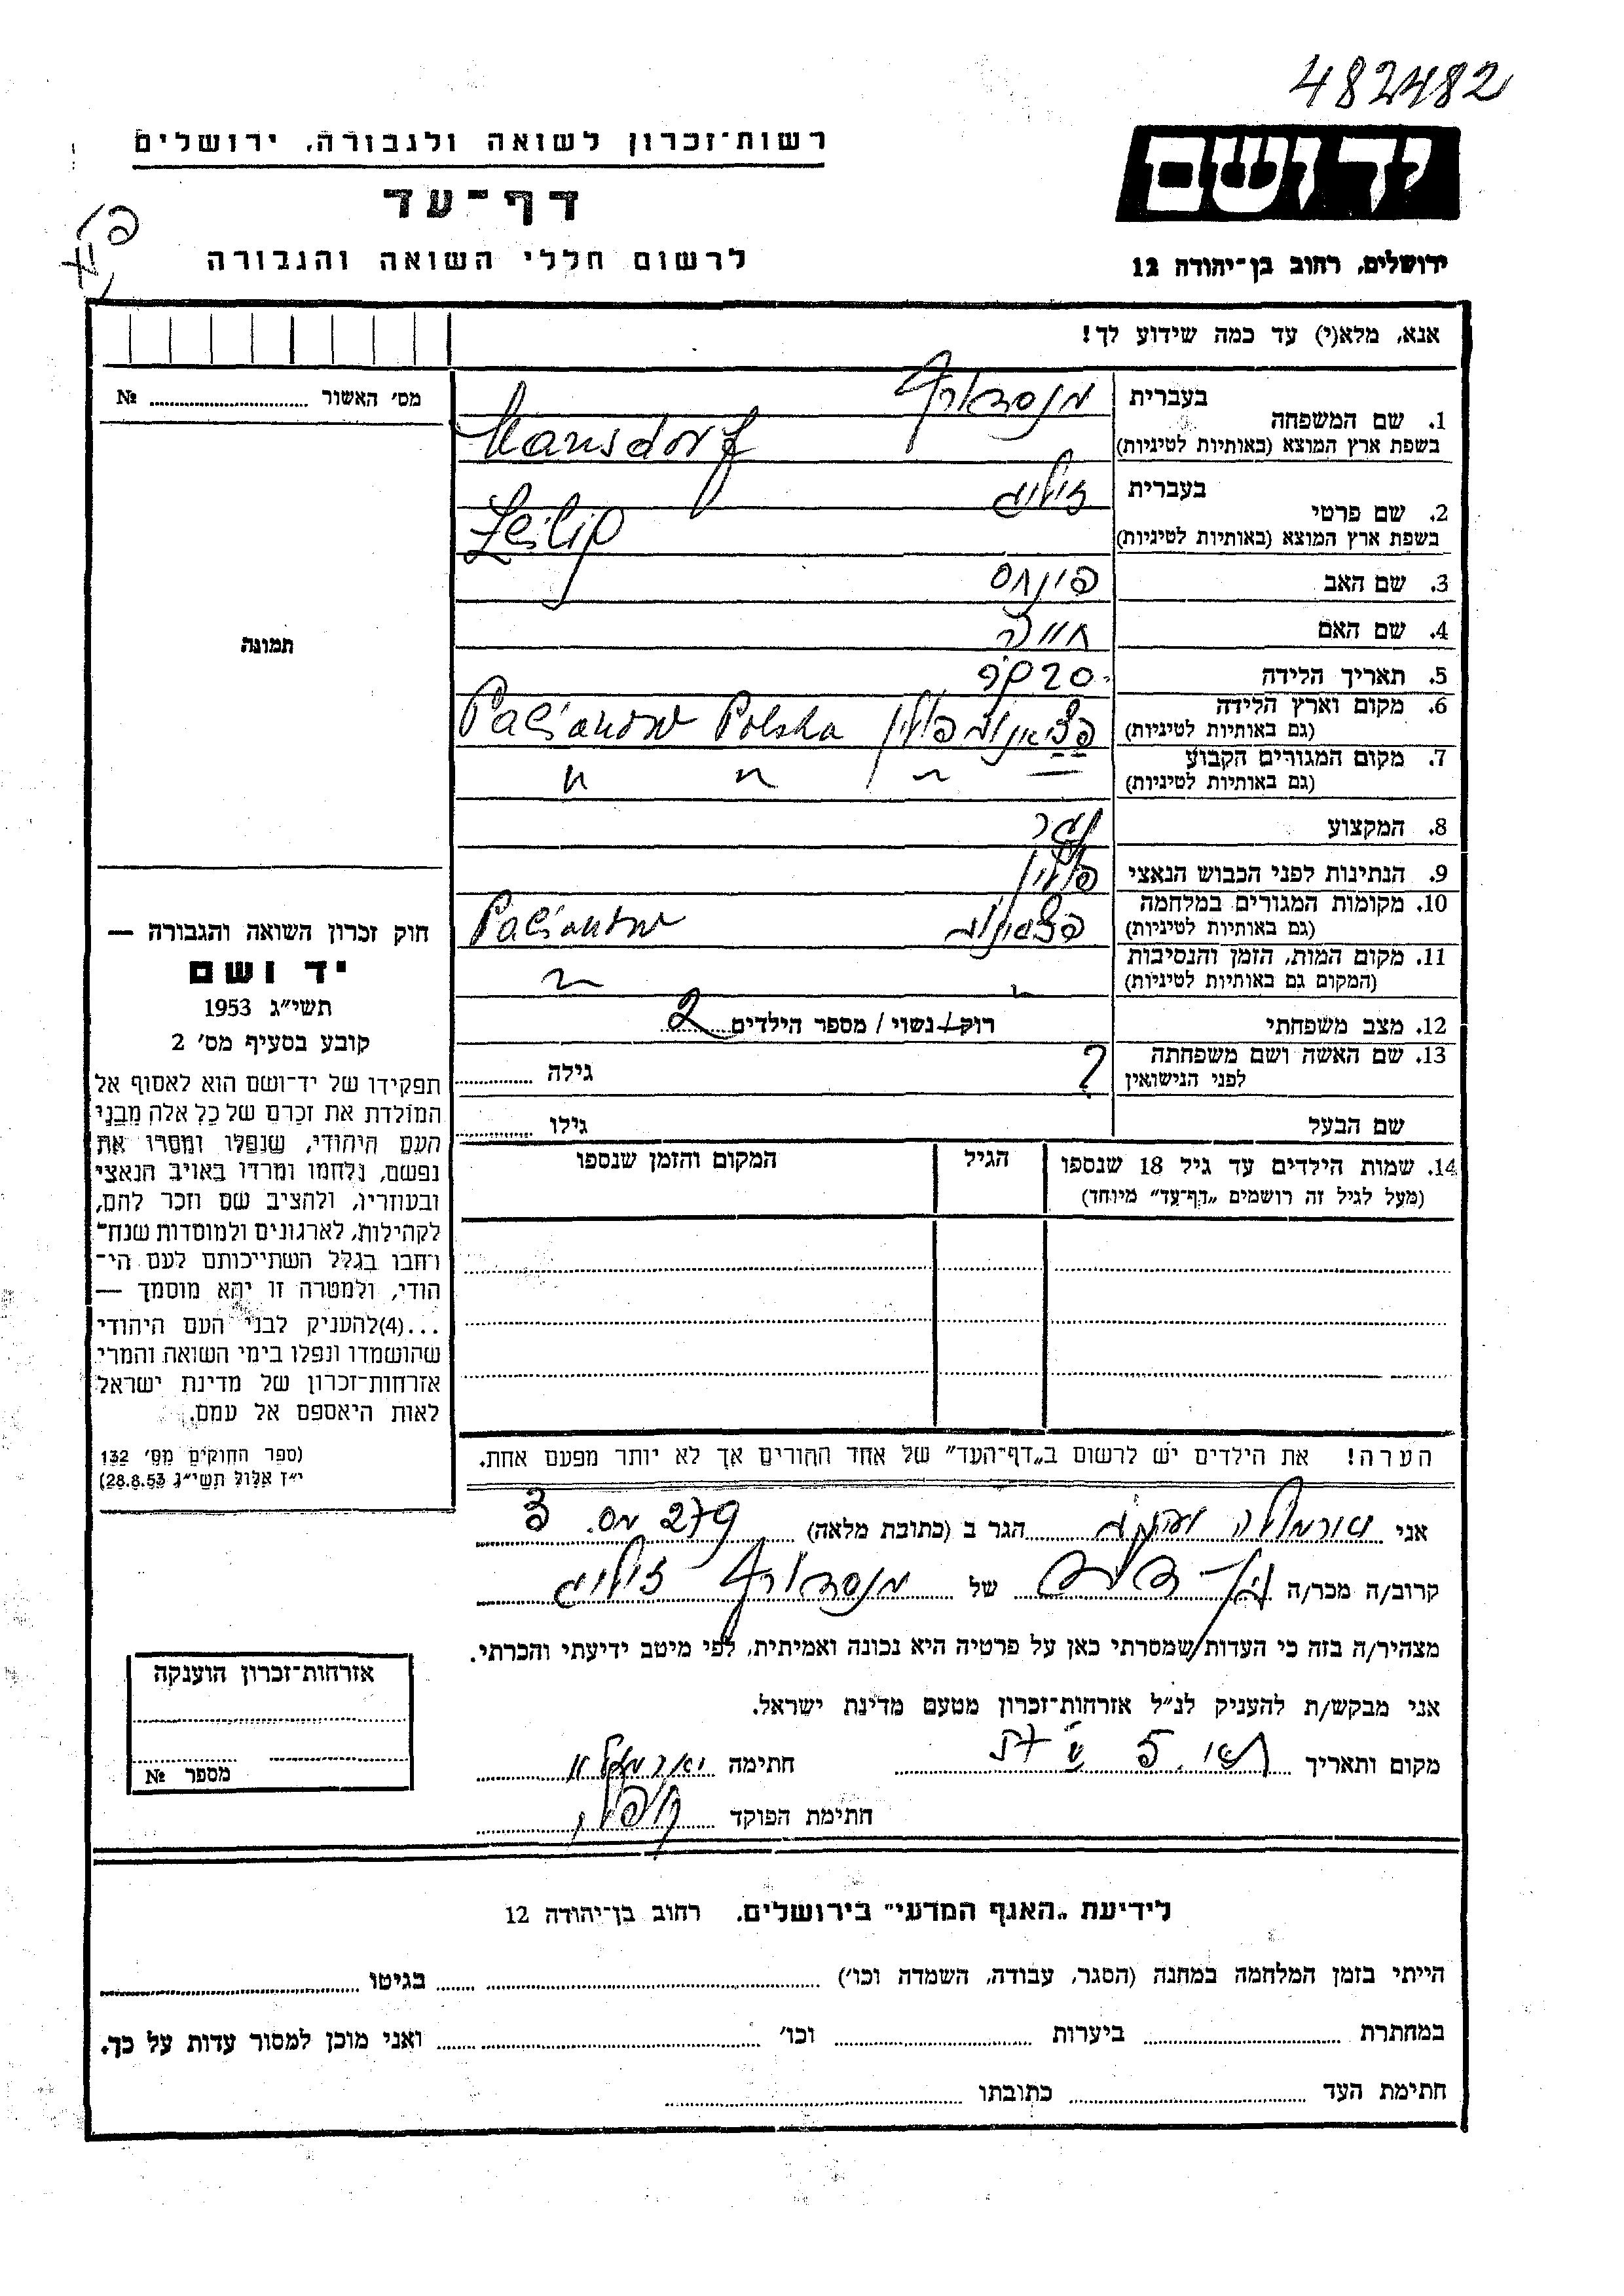 482482
רשות-זכרון לשואה ולגבורה, ירושלים
דף-עד
לרשום חללי השואה והגבורה
יד ושם
ירושלים, רחוב בן-יהודה 12
אנא, מלא(י) עד כמה שידוע לך!
מס' האשור № 
1. שם המשפחה בעברית מנסדורף
בשפת ארץ המוצא (באותיות לטיניות) Mansdorf
2. שם פרטי בעברית זיליג
בשפת ארץ המוצא (באותיות לטיניות)
3. שם האב פינחס
4. שם האם חיה
5. תאריך הלידה
6. מקום וארץ הלידה (גם באותיות לטיניות) פולין Pacianow Polska
7. מקום המגורים הקבוע (גם באותיות לטיניות) " " "
8. המקצוע
9. הנתינות לפני הכבוש הנאצי פולין
10. מקומות המגורים במלחמה (גם באותיות לטיניות) Pacianow
11. מקום המות, הזמן והנסיבות (המקום גם באותיות לטיניות)
12. מצב משפחתי רווק / נשוי / מספר הילדים 2
13. שם האשה ושם משפחתה לפני הנישואין ? גילה
שם הבעל גילו
14. שמות הילדים עד גיל 18 שנספו (מעל לגיל זה רושמים "דף-עד" מיוחד) הגיל המקום והזמן שנספו
תמונה
חוק זכרון השואה והגבורה —
יד ושם
תשי"ג 1953
קובע בסעיף מס' 2
תפקידו של יד-ושם הוא לאסוף אל
המולדת את זכרם של כל אלה מבני
העם היהודי, שנפלו ומסרו את
נפשם, נלחמו ומרדו באויב הנאצי
ובעוזריו, ולהציב שם וזכר להם,
לקהילות, לארגונים ולמוסדות שנח-
רבו בגלל השתייכותם לעם הי-
הודי, ולמטרה זו יהא מוסמך —
...(4)להעניק לבני העם היהודי
שהושמדו ונפלו בימי השואה והמרי
אזרחות-זכרון של מדינת ישראל
לאות היאספם אל עמם.
(ספר החוקים מס' 132
י"ז אלול תשי"ג 28.8.53)
הערה! את הילדים יש לרשום ב"דף-העד" של אחד ההורים אך לא יותר מפעם אחת.
אני הגר ב (כתובת מלאה)
קרוב/ה מכר/ה של מנסדורף זיליג
מצהיר/ה בזה כי העדות שמסרתי כאן על פרטיה היא נכונה ואמיתית, לפי מיטב ידיעתי והכרתי.
אני מבקש/ת להעניק לנ"ל אזרחות-זכרון מטעם מדינת ישראל.
מקום ותאריך חתימה
חתימת הפוקד
אזרחות-זכרון הוענקה
מספר №
לידיעת "האגף המדעי" בירושלים, רחוב בן-יהודה 12
הייתי בזמן המלחמה במחנה (הסגר, עבודה, השמדה וכו') בגיטו
במחתרת ביערות וכו' ואני מוכן למסור עדות על כך.
חתימת העד כתובתו